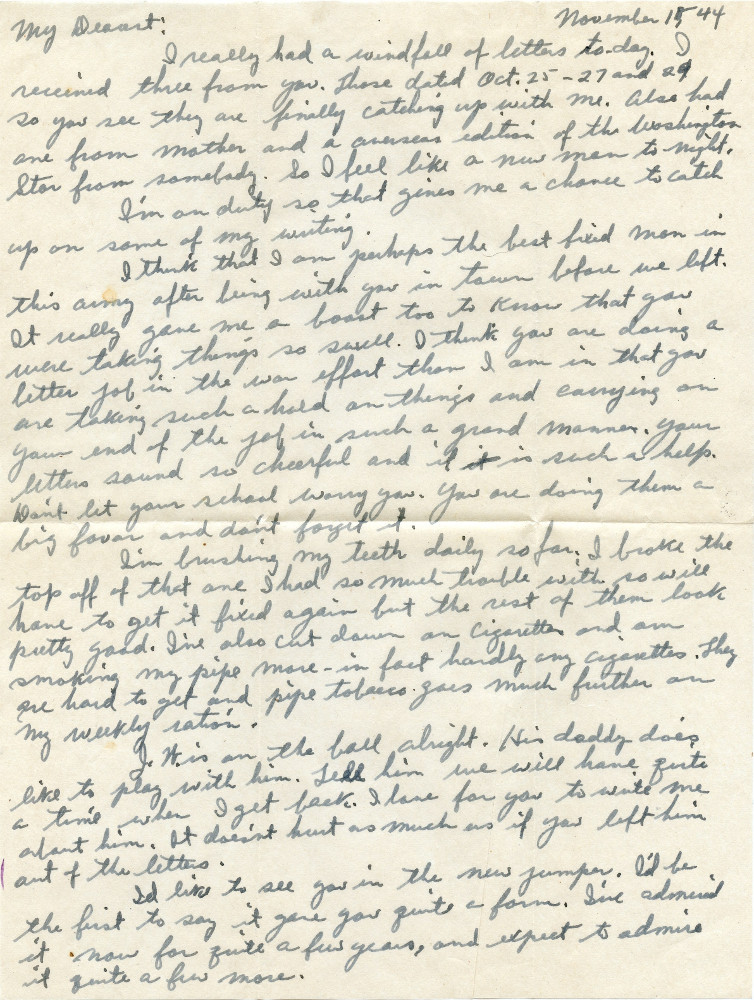 November 15, 44
My Dearest:
I really had a windfall of letters to-day. I
received three from you. Those dated Oct. 25-27 and 29
so you see they are finally catching up with me. Also had
one from mother and a overseas edition of the Washington
Star from somebody. So I feel like a new man to night.
I'm on duty so that gives me a chance to catch
up on some of my writing.
I think that I am perhaps the best fixed man in
this army after being with you in town before we left.
It really gave me a boost too to know that you
were taking things so swell. I think you are doing a
better job in the war effort than I am in that you
are taking such a hold on things and carrying on
your end of the job in such a grand manner. Your
letters sound so cheerful and it is such a help.
Don't let your school worry you. You are doing them a
big favor and don't forget it.
I'm brushing my teeth daily so far. I broke the
top off of that one I had so much trouble with so will
have to get it fixed again but the rest of them look
pretty good. I've also cut down on cigarettes and am
smoking my pipe more - in fact hardly any cigarettes. They
are hard to get and pipe tobacco goes much further on
my weekly ration.
J.W. is on the ball alright. His daddy does
like to play with him. Tell him we will have quite
a time when I get back. I love for you to write me
about him. It doesn't hurt as much as if you left him
out of the letters.
I'd like to see you in the new jumper. I'd be
the first to say it gave you quite a form. I've admired
it now for quite a few years, and expect to admire
it quite a few more.